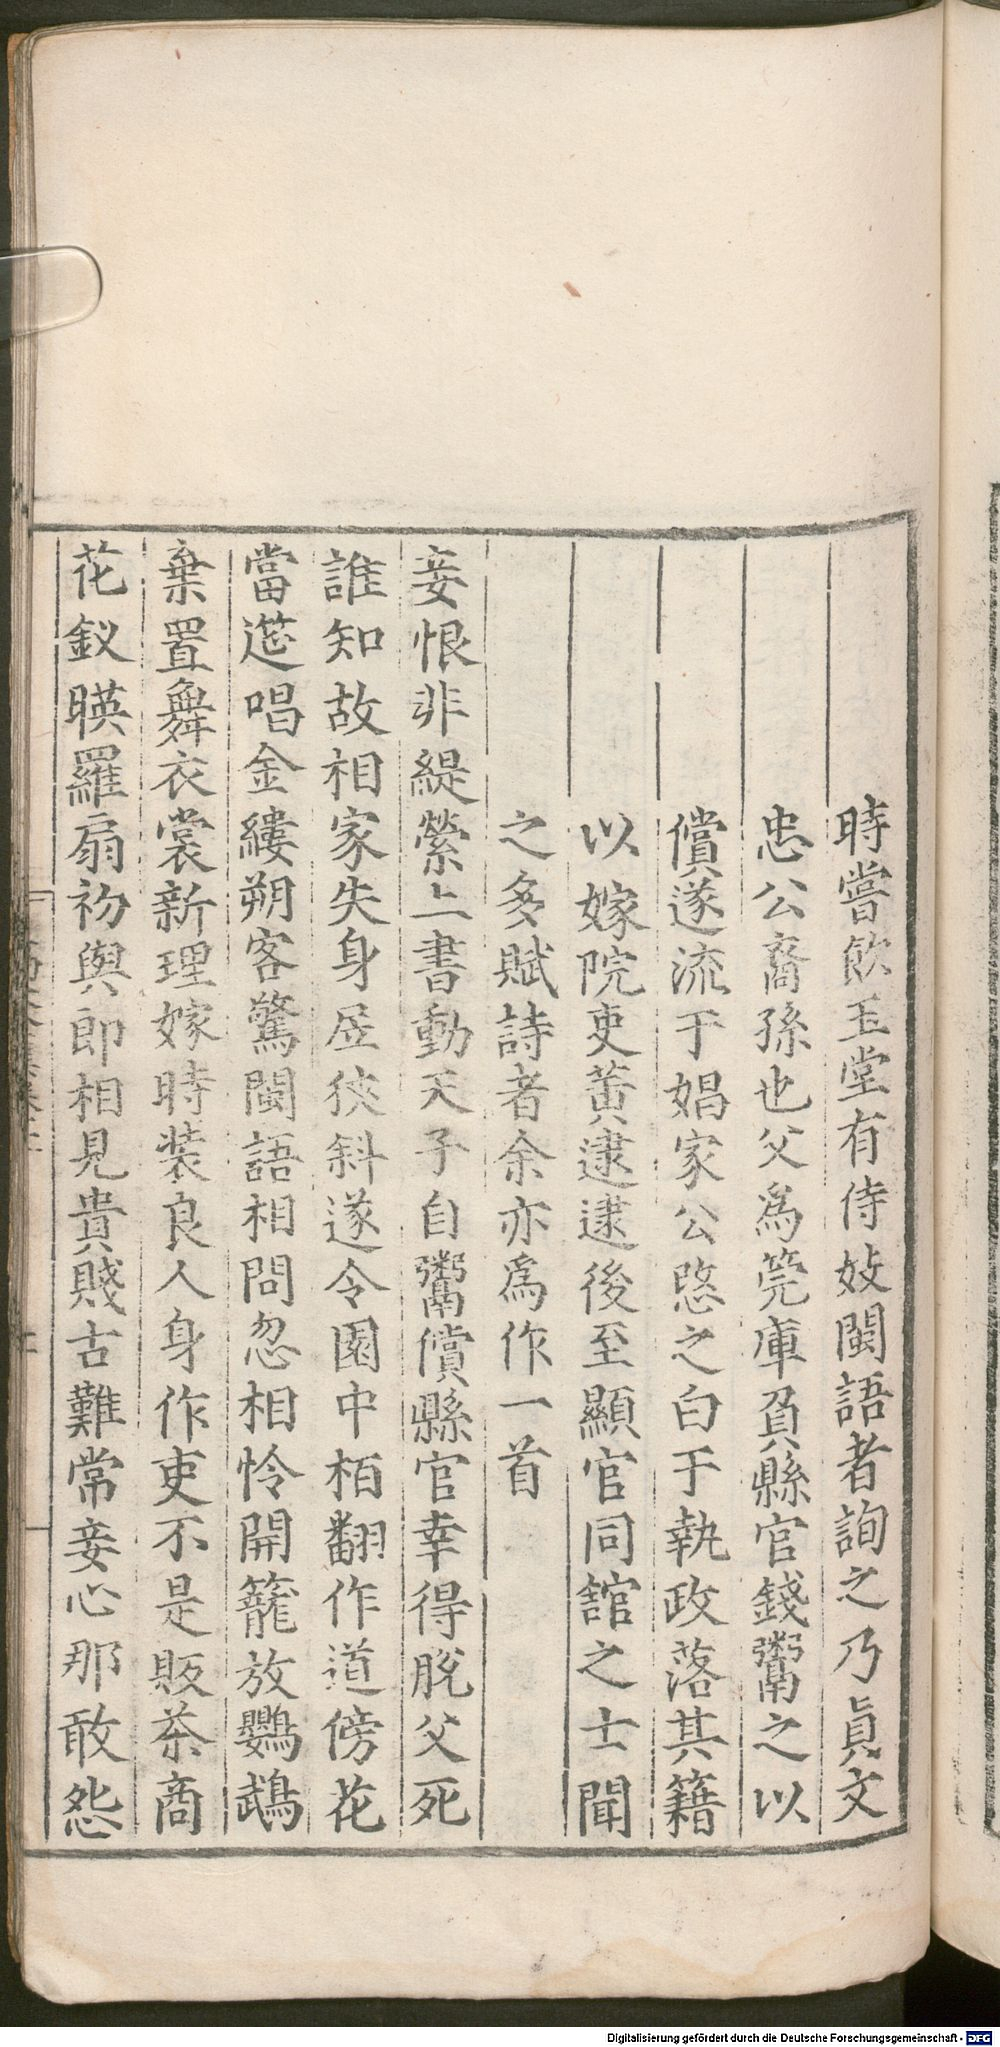 時嘗飲玉堂有侍妓閩語者詢之乃眞文
忠公裔孫也父爲筦庫負縣官錢鬻之以
償遂流于娼家公愍之白于執政落其籍
以嫁院吏黄逮逮後至顯官同舘之士聞
之多賦詩者余亦爲作一首
妾恨非緹縈上書動天子自鬻償縣官幸得脫父死
誰知故相家失身居狹斜遂令園中栢翻作道傍花
當筵唱金縷朔客驚閩語相問忽相怜開籠放鸚鵡
棄置舞衣裳新理嫁時装良人身作吏不是販茶商
花釵暎羅扇初與郎相見貴賤古難常妾心那敢怨
Digitalisierung gefördert durch die Deutsche Forschungsgemeinschaft - DFG